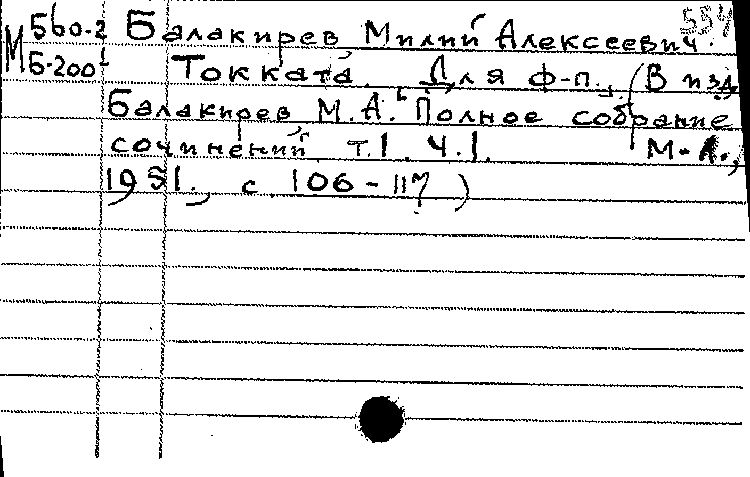 554
М 560-2 Балакирев Милий Алексеевич.
Б-200 Токката. Для ф-п., (В изд.
Балакирев М.А. "Полное собрание
сочинений" т.1 ч.1. М.-Л.,
1951., с. 106-117)